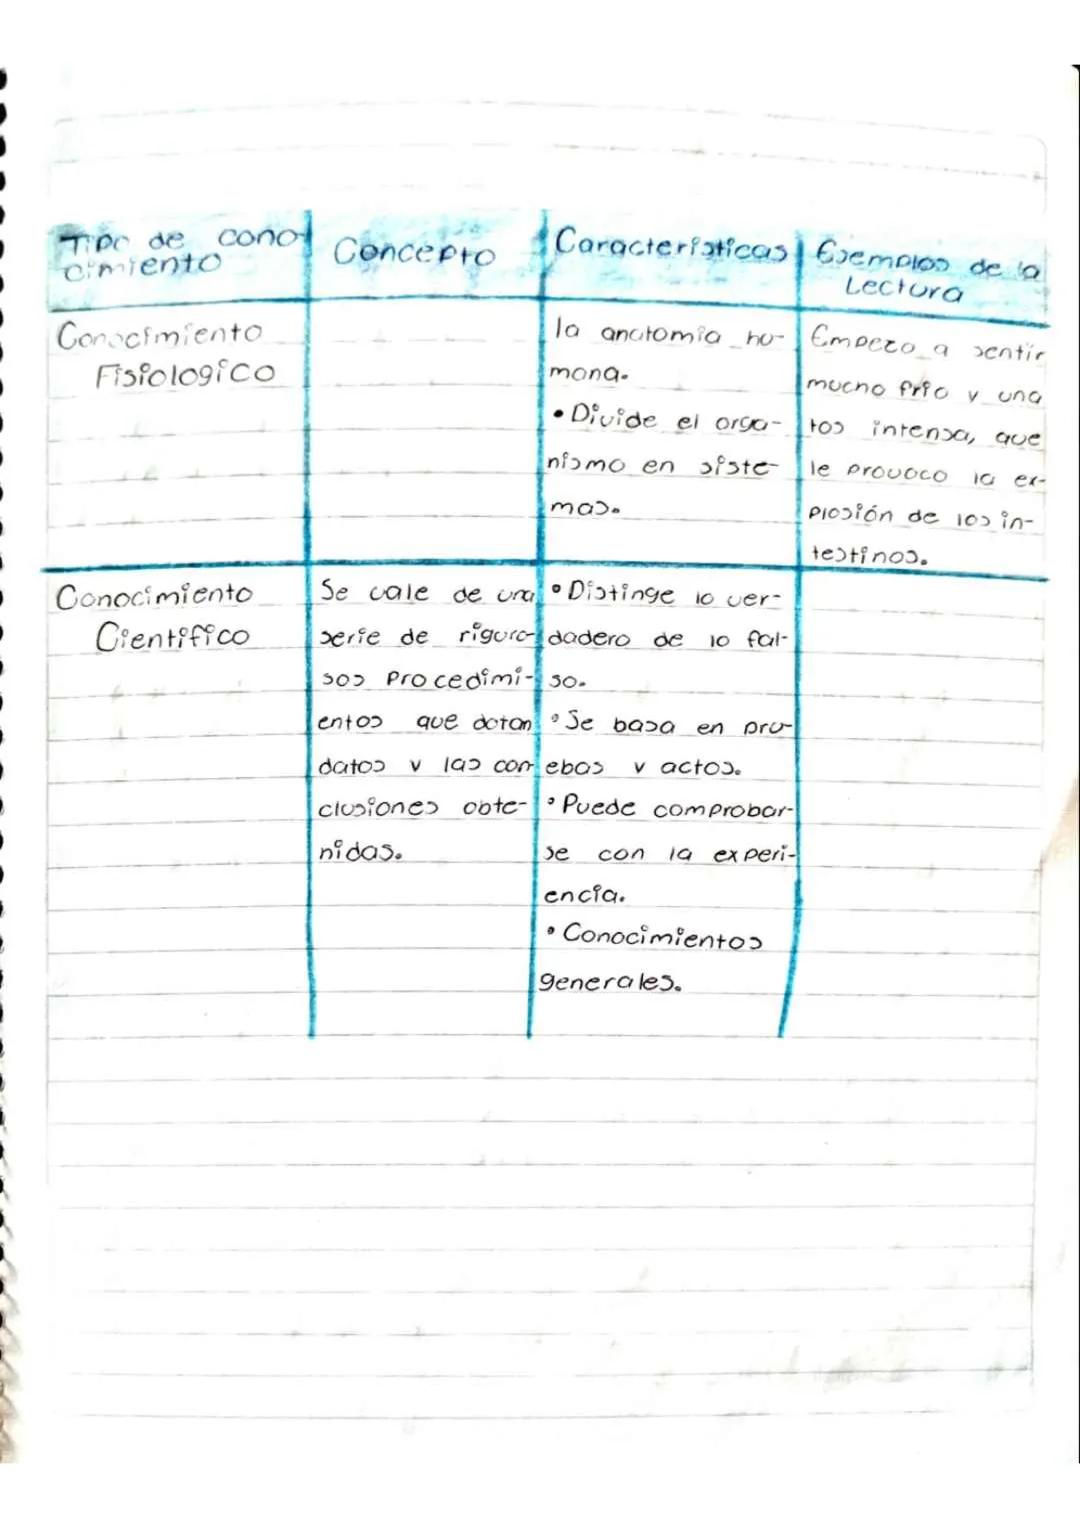 Tipo de cono-
cimiento
Concepto
Caracteristicas
Ejemplos de la
Lectura
Conocimiento
Fisiologico
la anatomia hu-
mana.
• Divide el orga-
nismo en siste-
mas.
Empezo a sentir
mucho frio y una
tos intensa, que
le provoco la ex-
plosión de los in-
testinos.
Conocimiento
Cientifico
Se vale de una
serie de riguro-
sos Procedimi-
entos que dotan
datos y las con-
clusiones obte-
nidas.
• Distinge lo ver-
dadero de lo fal-
so.
• Se basa en pru-
ebas y actos.
• Puede comprobar-
se con la experi-
encia.
• Conocimientos
generales.